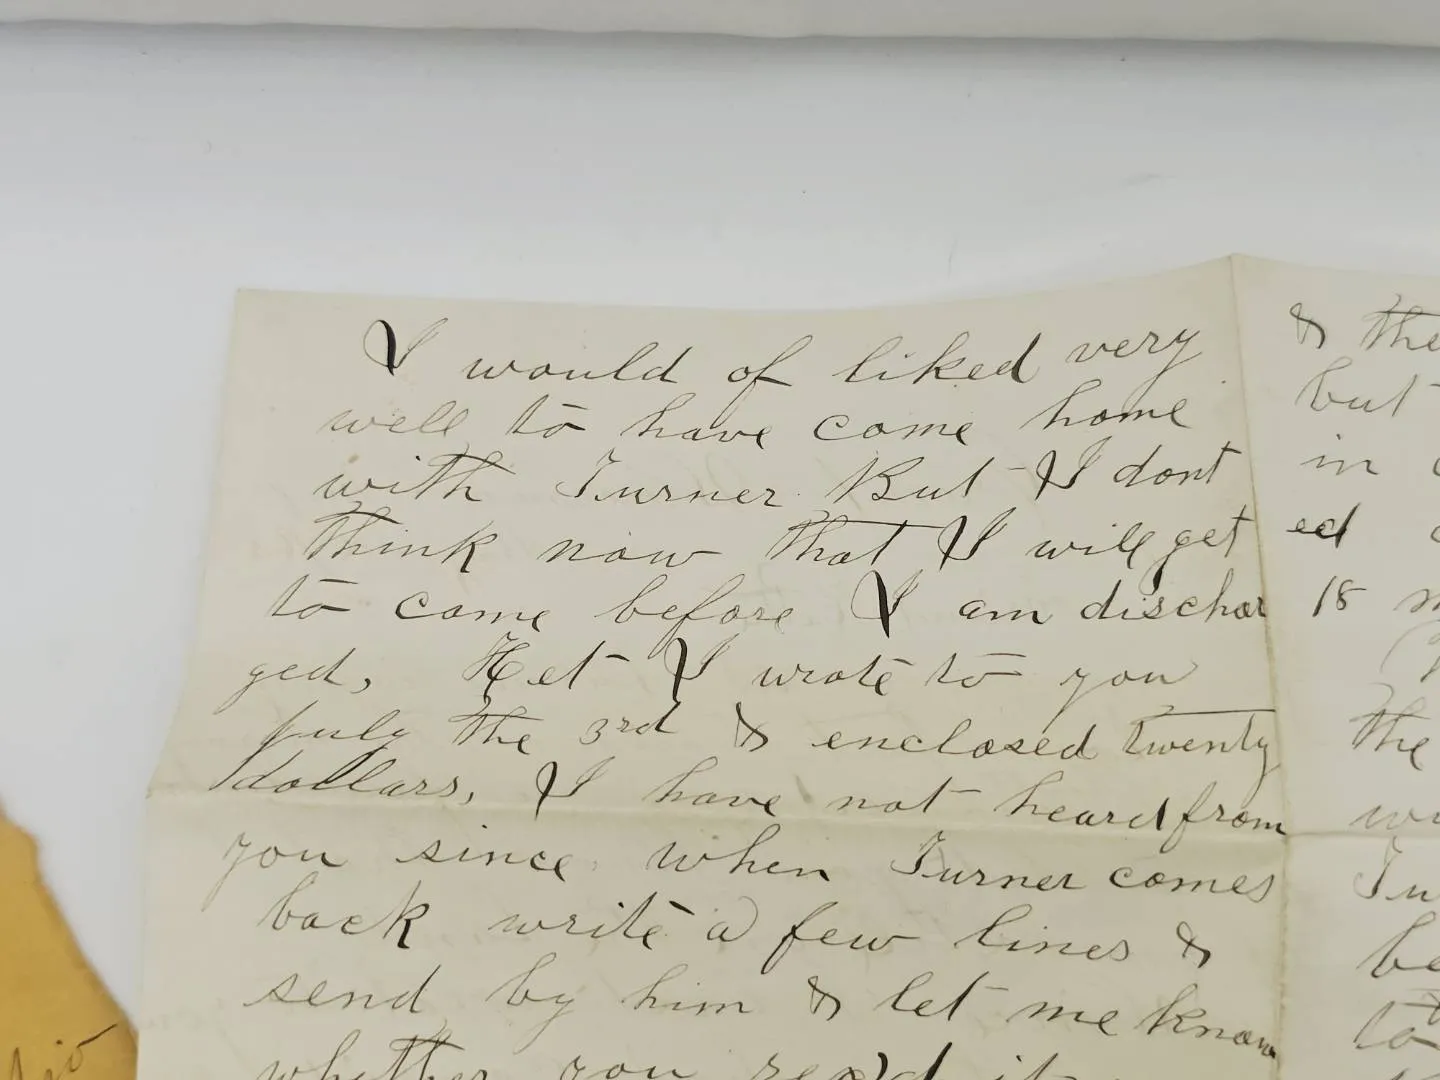 I would of liked very
well to have come home
with Turner But I dont
think now that I will get
to come before I am dischar
ged, Het I wrote to you
July the 3rd & enclosed twenty
dollars, I have not heard from
you since when Turner comes
back write a few lines &
send by him & let me know
whether you recd it
& the
but
in
ed
18
the
Tu
be
to